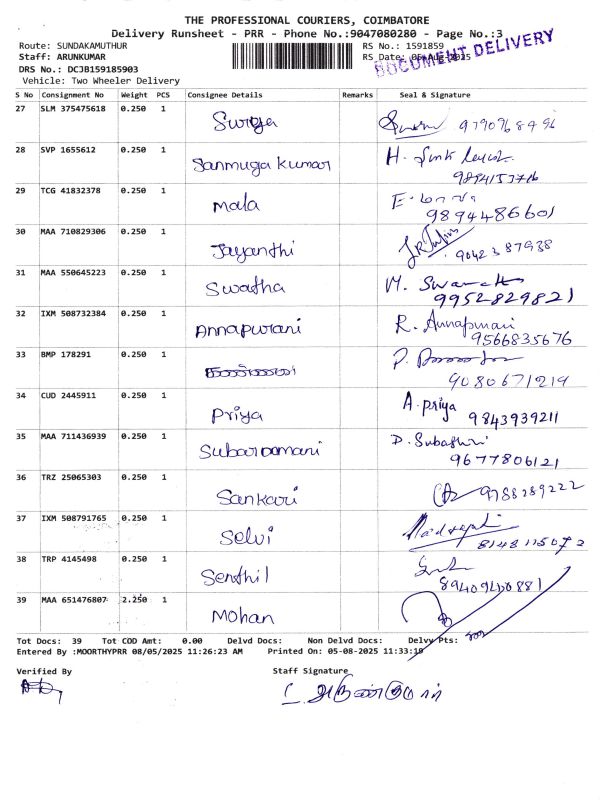 THE PROFESSIONAL COURIERS, COIMBATORE
Delivery Runsheet - PRR - Phone No.:9047080280 - Page No.:3
Route: SUNDAKAMUTHUR RS No.: 1591859
Staff: ARUNKUMAR RS Date: 05-Aug-2025
DOCUMENT DELIVERY
DRS No.: DCJB159185903
Vehicle: Two Wheeler Delivery
S No Consignment No Weight PCS Consignee Details Remarks Seal & Signature
27 SLM 375475618 0.250 1 Surya
28 SVP 1655612 0.250 1 Sanmuga kumar H.
29 TCG 41832378 0.250 1 Mala 9894486601
30 MAA 710829306 0.250 1 Jayanthi 9042387938
31 MAA 550645223 0.250 1 Swatha M. 9952829821
32 IXM 508732384 0.250 1 Annapurani R. Annapurani 9566835676
33 BMP 178291 0.250 1 9080671219
34 CUD 2445911 0.250 1 Priya A. Priya 9843939211
35 MAA 711436939 0.250 1 D. Subashri 9677806121
36 TRZ 25065303 0.250 1 Sankari 9788289222
37 IXM 508791765 0.250 1 Selvi
38 TRP 4145498 0.250 1 Senthil
39 MAA 651476807 2.250 1 Mohan
Tot Docs: 39 Tot COD Amt: 0.00 Delvd Docs: Non Delvd Docs: Delvy Pts:
Entered By :MOORTHYPRR 08/05/2025 11:26:23 AM Printed On: 05-08-2025 11:33:19
Verified By Staff Signature